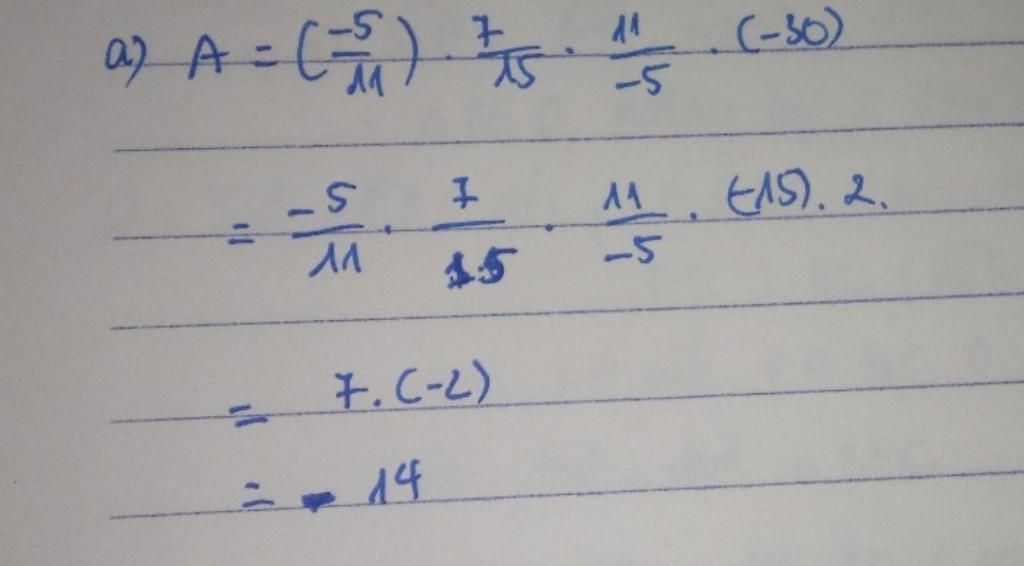 a) A = (-5/11) . 7/15 . 11/-5 . (-30)
= -5/11 . 7/15 . 11/-5 . (-15). 2.
= 7. (-2)
= - 14